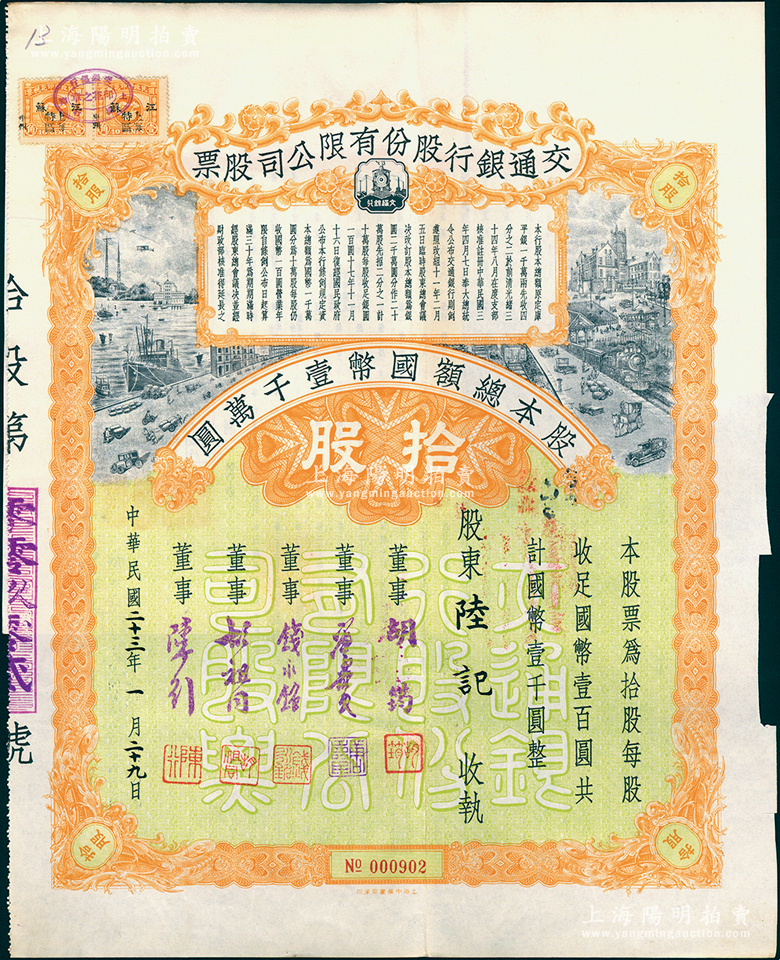 上海陽明拍賣
www.yangmingauction.com
13
江蘇
江蘇
拾股
拾股
交通銀行股份有限公司股票
交通銀行
本行股本總額原定庫
平銀一千萬兩先收四
分之二於前清光緒三
十四年八月在度支部
核准註册中華民國三
年四月七日奉大總統
令公布交通銀行則例
遵照改組十一年二月
五日臨時股東總會議
決改訂股本總額為銀
圓二千萬圓分作二十
萬股先招二分之一計
十萬股每股收足銀圓
一百圓十七年十一月
十六日復經國民政府
公布本行條例規定資
本總額為國幣一千萬
圓分為十萬股每股仍
收國幣一百圓營業年
限自條例公布日起算
滿三十年為期期滿時
經股東總會議決並經
財政部核准得延長之
股本總額國幣壹千萬圓
拾股
上海陽明拍賣
www.yangmingauction.com
本股票為拾股每股
收足國幣壹百圓共
計國幣壹千圓整
股東 陸記 收執
董事 胡筠
董事 唐壽民
董事 錢永銘
董事 胡祖同
董事 陳行
中華民國二十三年一月二十九日
拾股第
零零玖零貳
號
拾股
拾股
No 000902
上海陽明拍賣
www.yangmingauction.com